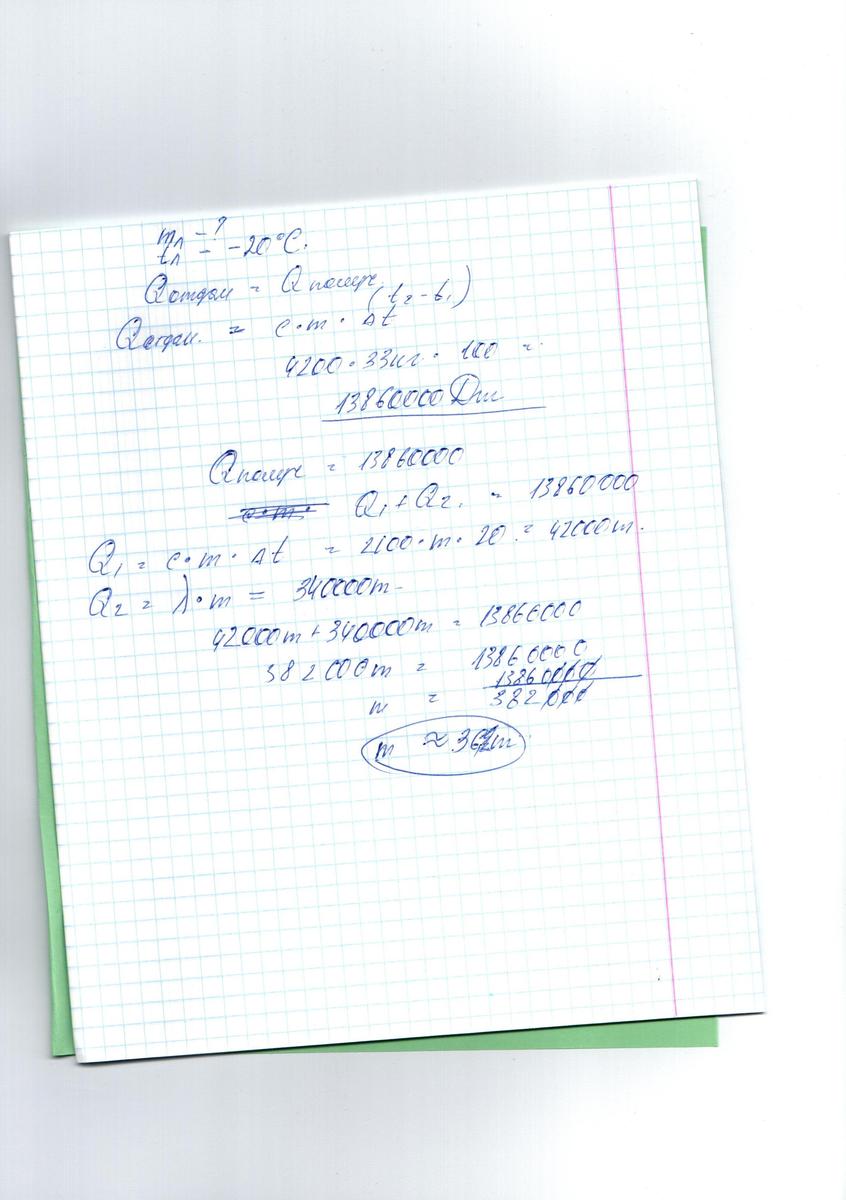 mл - ?
tл = -20°C.
Qотдан = Qполуч
(t₂-t₁)
Qотдан. = c·m·Δt
4200·33кг·100 =
13860000Дж
Qполуч = 13860000
c·m· Q₁+Q₂ = 13860000
Q₁ = c·m·Δt = 2100·m·20 = 42000m.
Q₂ = λ·m = 340000m
42000m+340000m = 13860000
382000m = 13860000
m = 13860000/382000